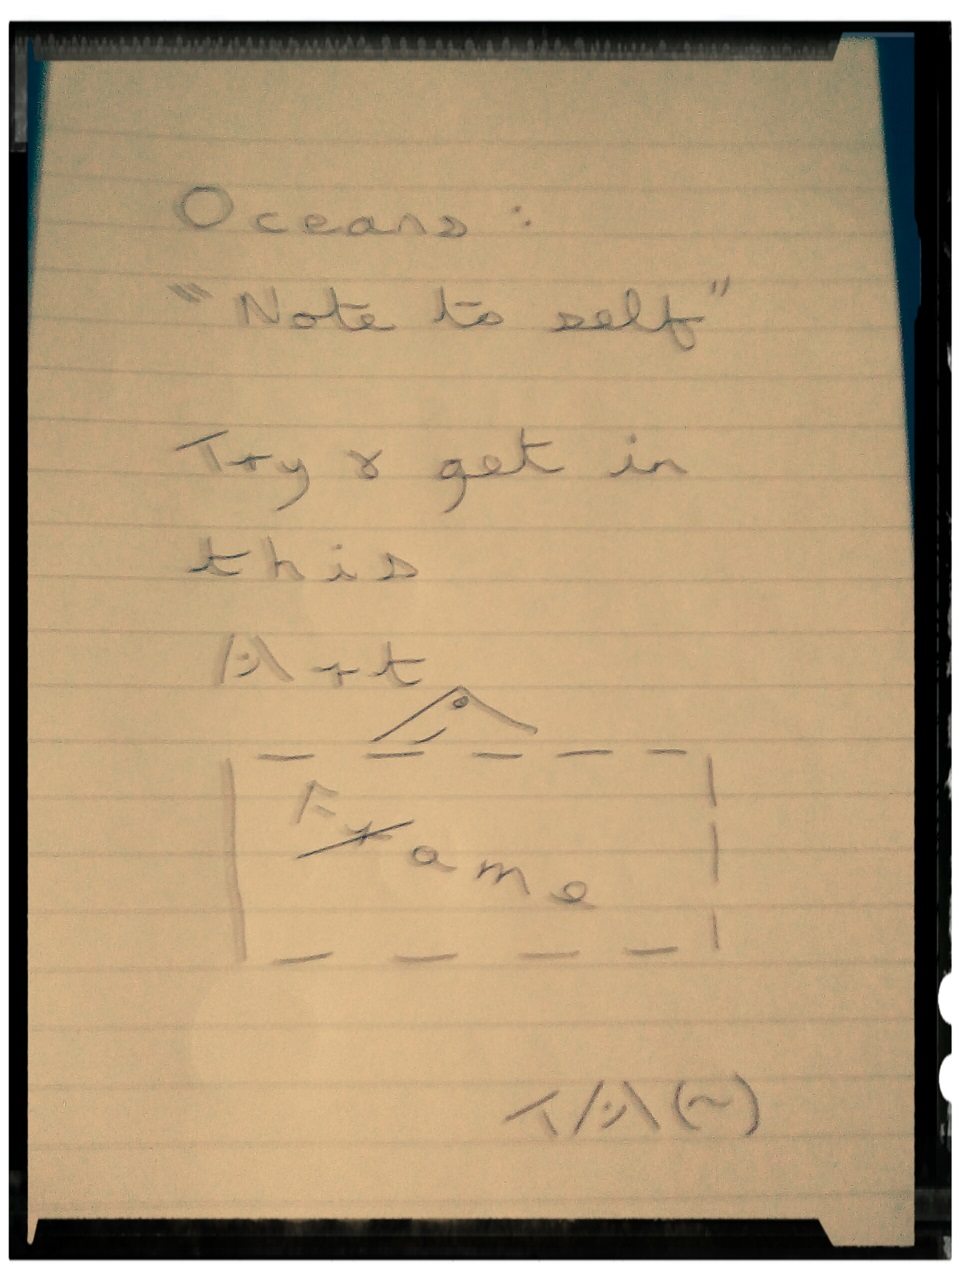 Oceans :
"Note to self"
Try & get in
this
Art
Frame